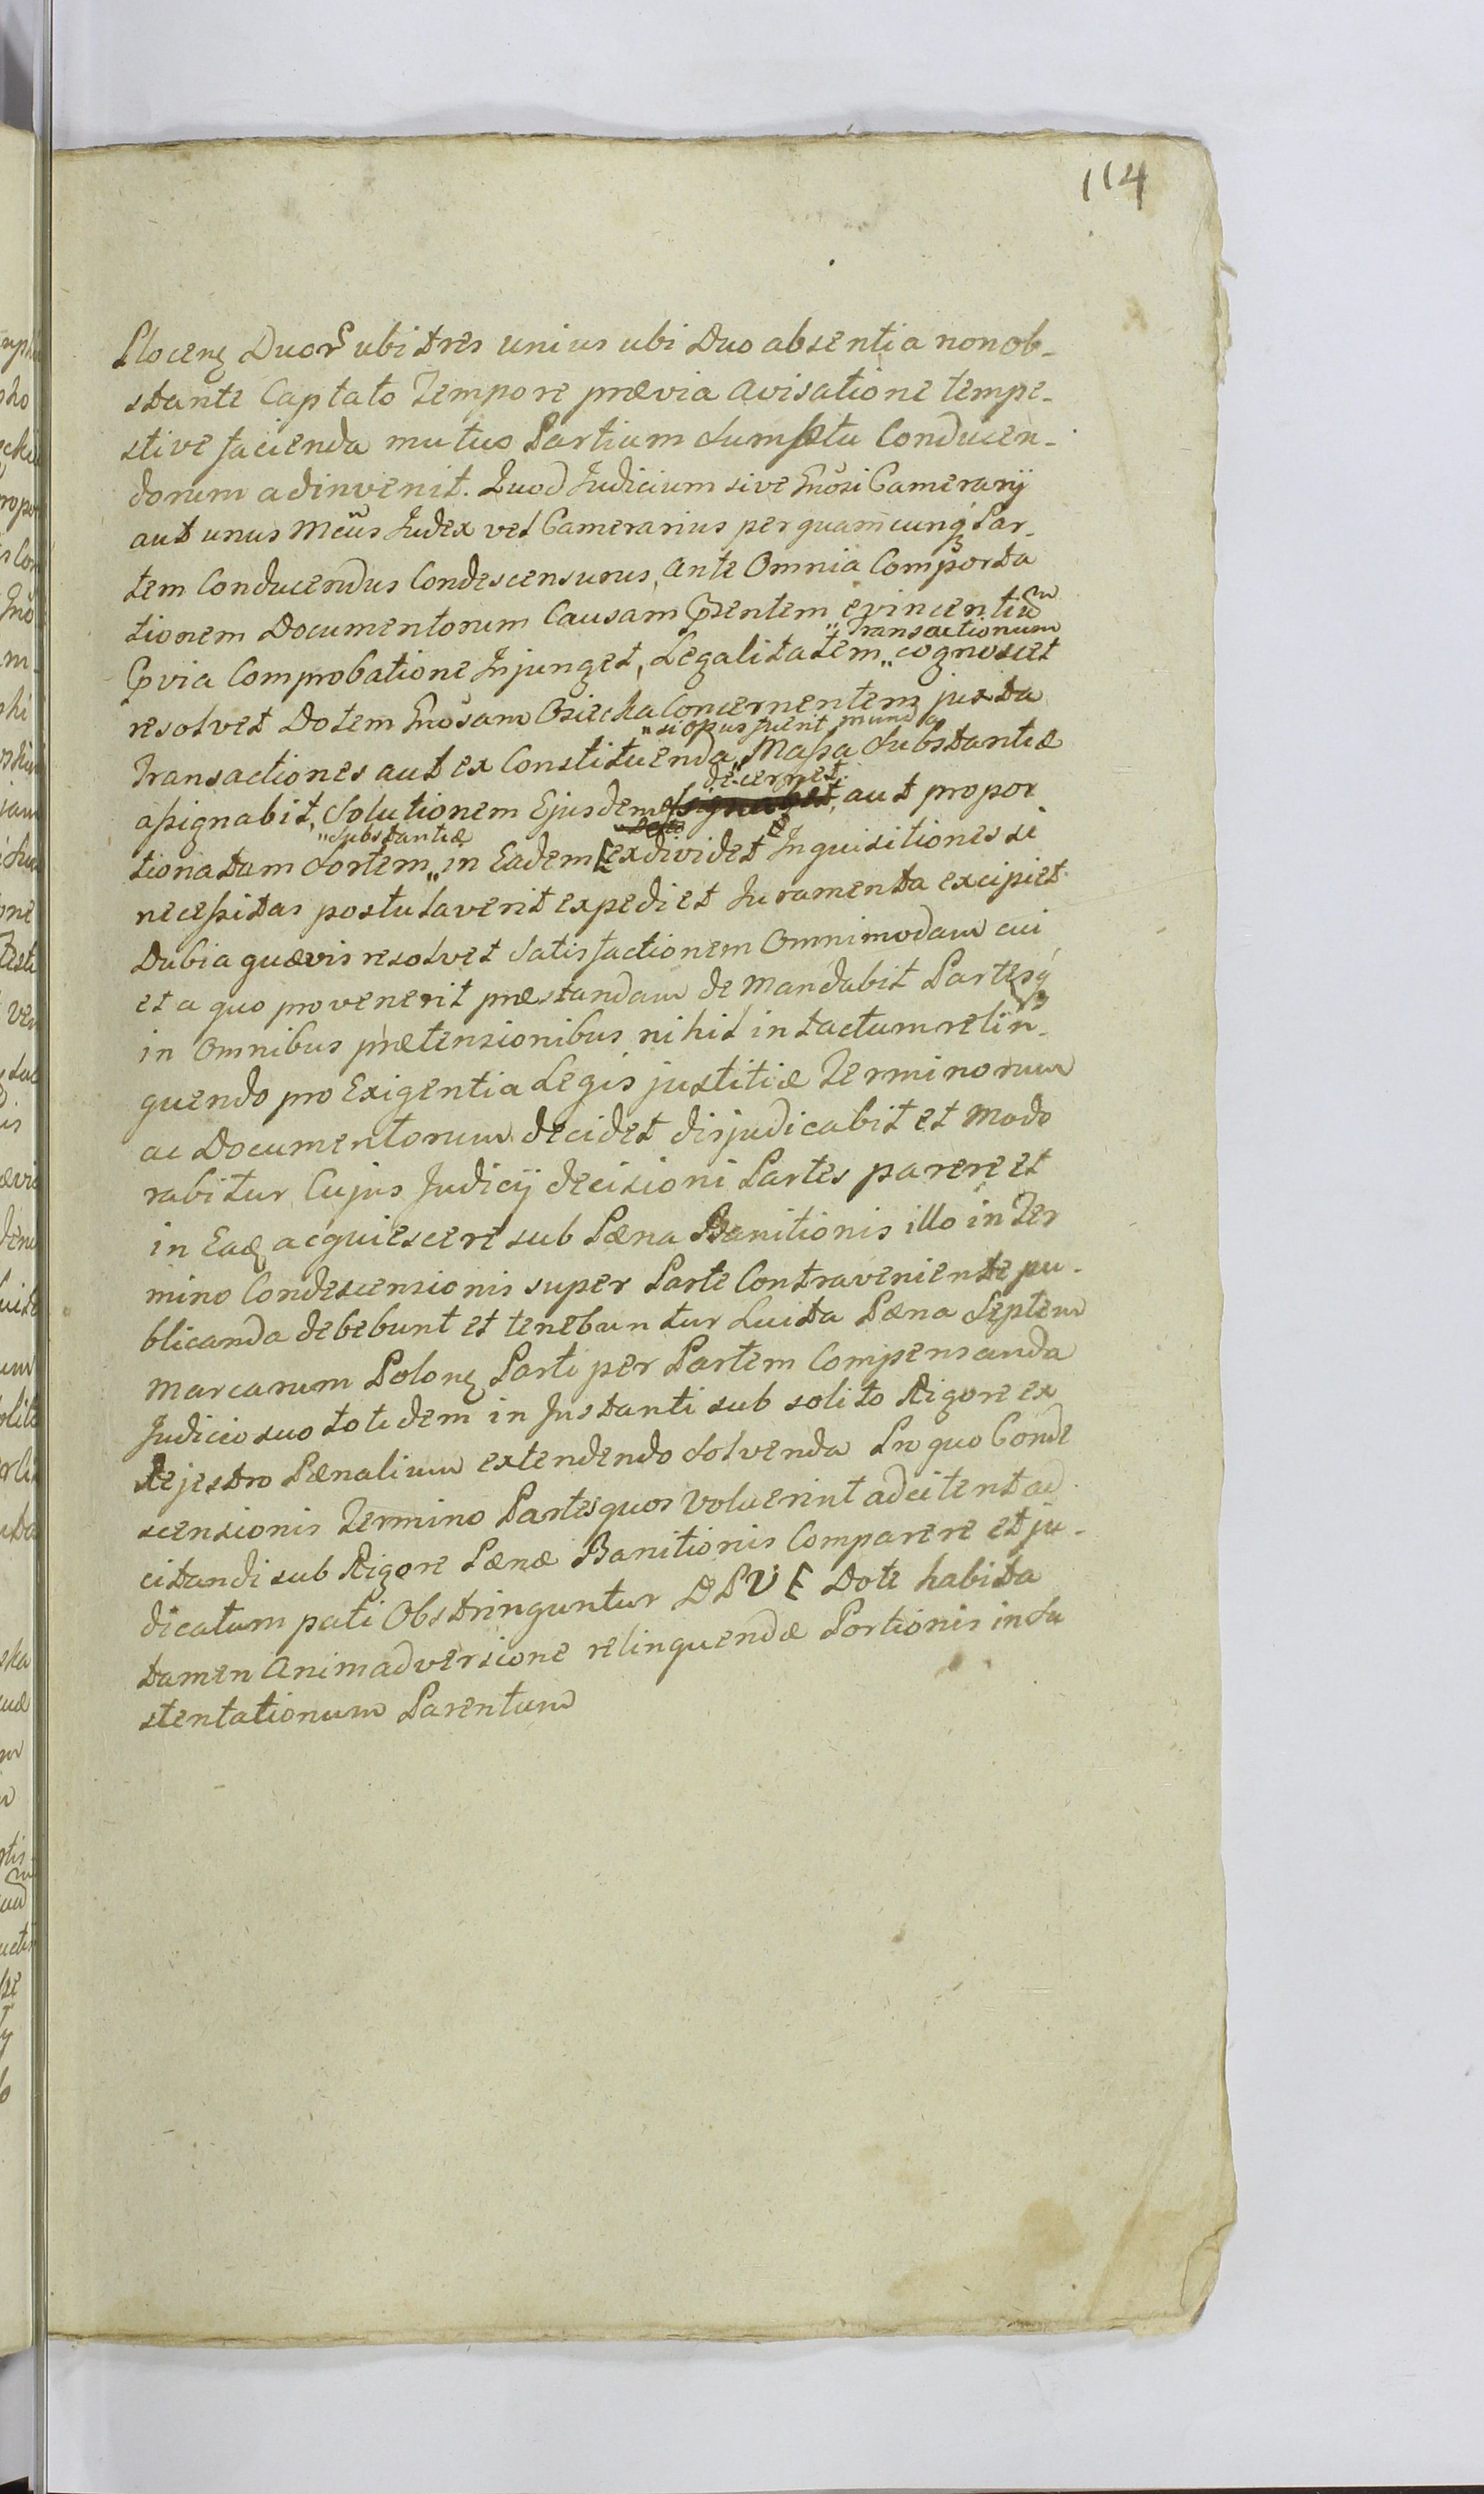 114
Plocen Duor ubi tres unius ubi Duo absentia non ob-
stante Captato Tempore prævia avisatione tempe-
stive facienda mutuo Partium Sumptu Conducen-
dorum adinvenit. Quod Judicium sive Gnosi Camerarij
aut unus Mcus Judex vel Camerarius per quamcunq Par-
tem Conducendus Condescensurus, ante Omnia Comporta
tionem Documentorum Causam Pntem evincentium
Transactionum
Pvia Comprobatione Injunget, Legalitatem,, cognoscet
resolvet Dotem Gnosam Osiecka Concernentem juxta
,,si opus fuerit munda
Transactiones aut ex Constituenda,, Massa Substantiæ
decernet
assignabit, Solutionem Ejusdem aut propor
,,Substantiæ
tionatam Sortem,, in Eadem exdividet Inquisitiones si
necessitas postulaverit expediet Juramenta excipiet
Dubia quævis resolvet Satisfactionem Omnimodam cui
et a quo provenerit præstandam de Mandabit Partesq
in Omnibus prætensionibus nihil intactum relin-
quendo pro Exigentia Legis justitiæ Terminorum
ac Documentorum decidet disjudicabit et Mode
rabitur Cujus Judicij decisioni Partes parere et
in Eaq acquiescere sub Pæna Banitionis illo in Ter
mino Condescensionis super Parte Contraveniente pu-
blicanda debebunt et tenebuntur Luita Pæna Septem
Marcarum Polon Parti per Partem Compensanda
Judicio suo totidem in Instanti sub solito Rigore ex
Rejestro Pænalium extendendo Solvenda In quo Conde
scensionis Termino Partes quos voluerint adcitent ad
citandi sub Rigore Pænæ Banitionis Comparere et ju-
dicatum pati Obstringuntur DPVE Dote habita
tamen Animadversione relinquendæ Portionis in Su
stentationum Parentum